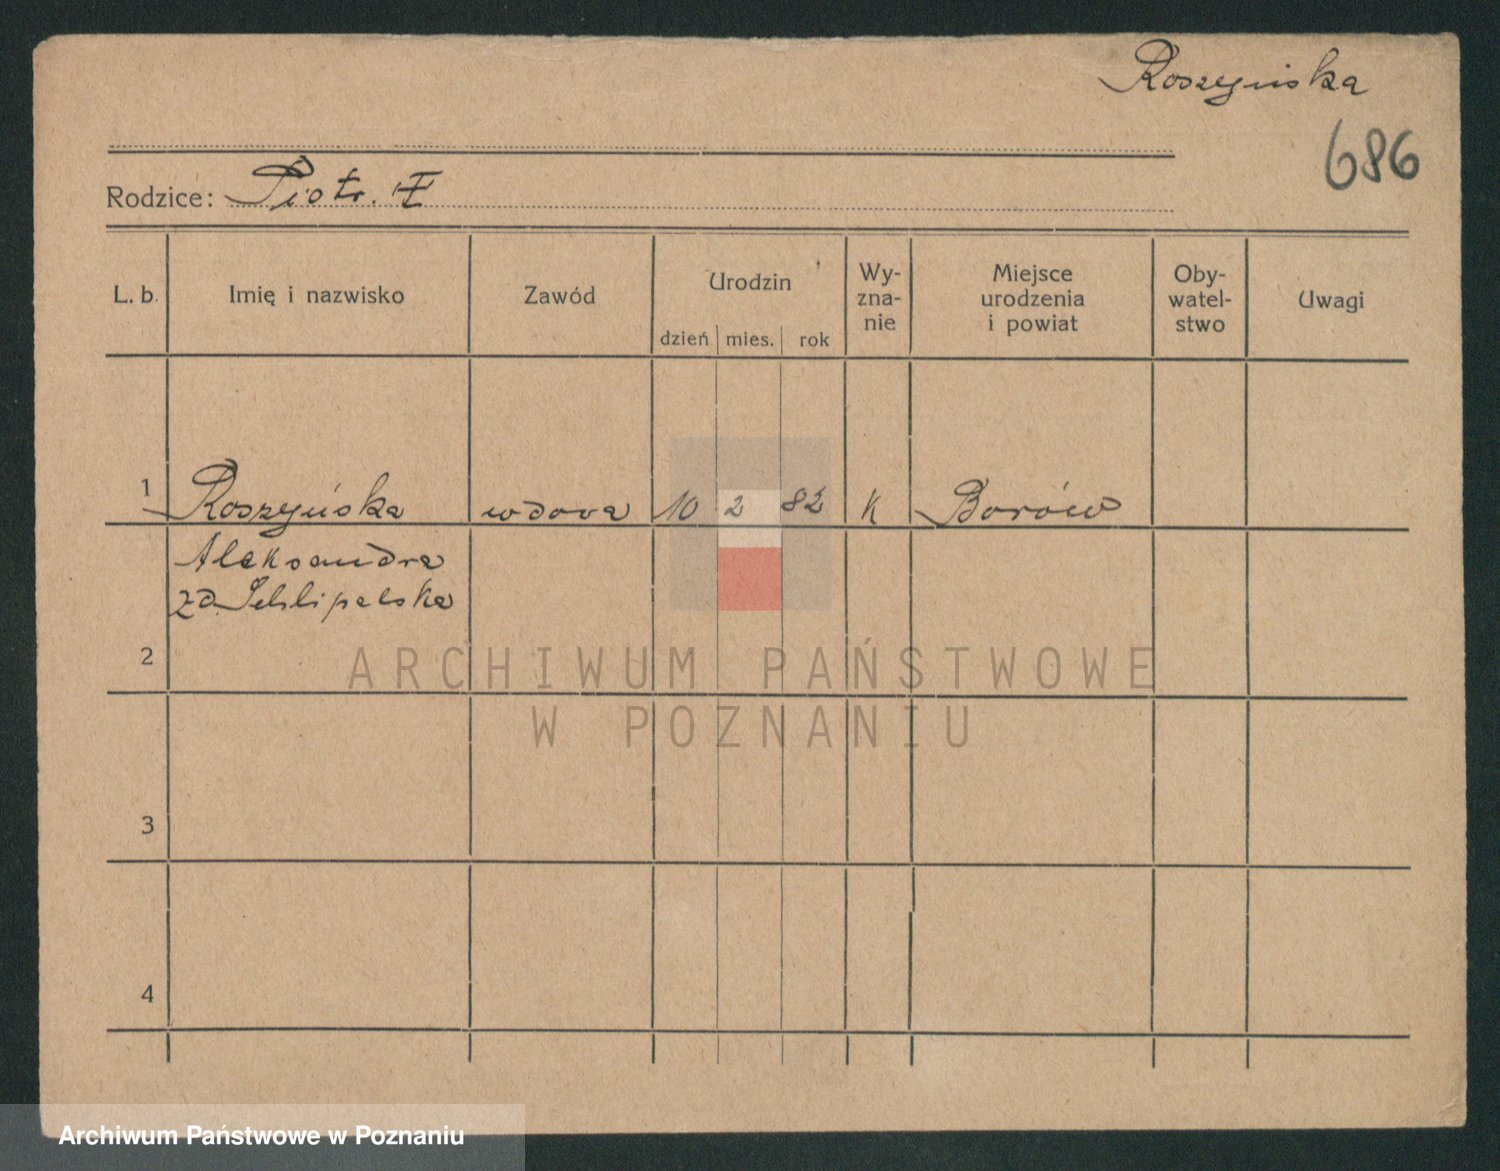 Roszyńska
686
Rodzice: Piotr. F
L. b. Imię i nazwisko Zawód Urodzin dzień mies. rok Wy-zna-nie Miejsce urodzenia i powiat Oby-watel-stwo Uwagi
1 Roszyńska wdova 10 2 82 K Borów
Aleksandra
zd.
2
ARCHIWUM PAŃSTWOWE
W POZNANIU
3
4
Archiwum Państwowe w Poznaniu